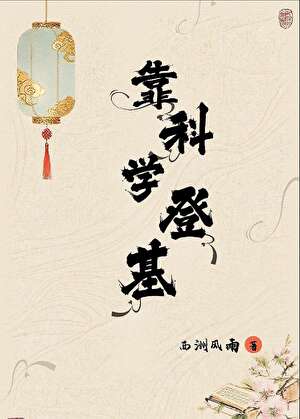 靠科学登基
西洲风雨 著